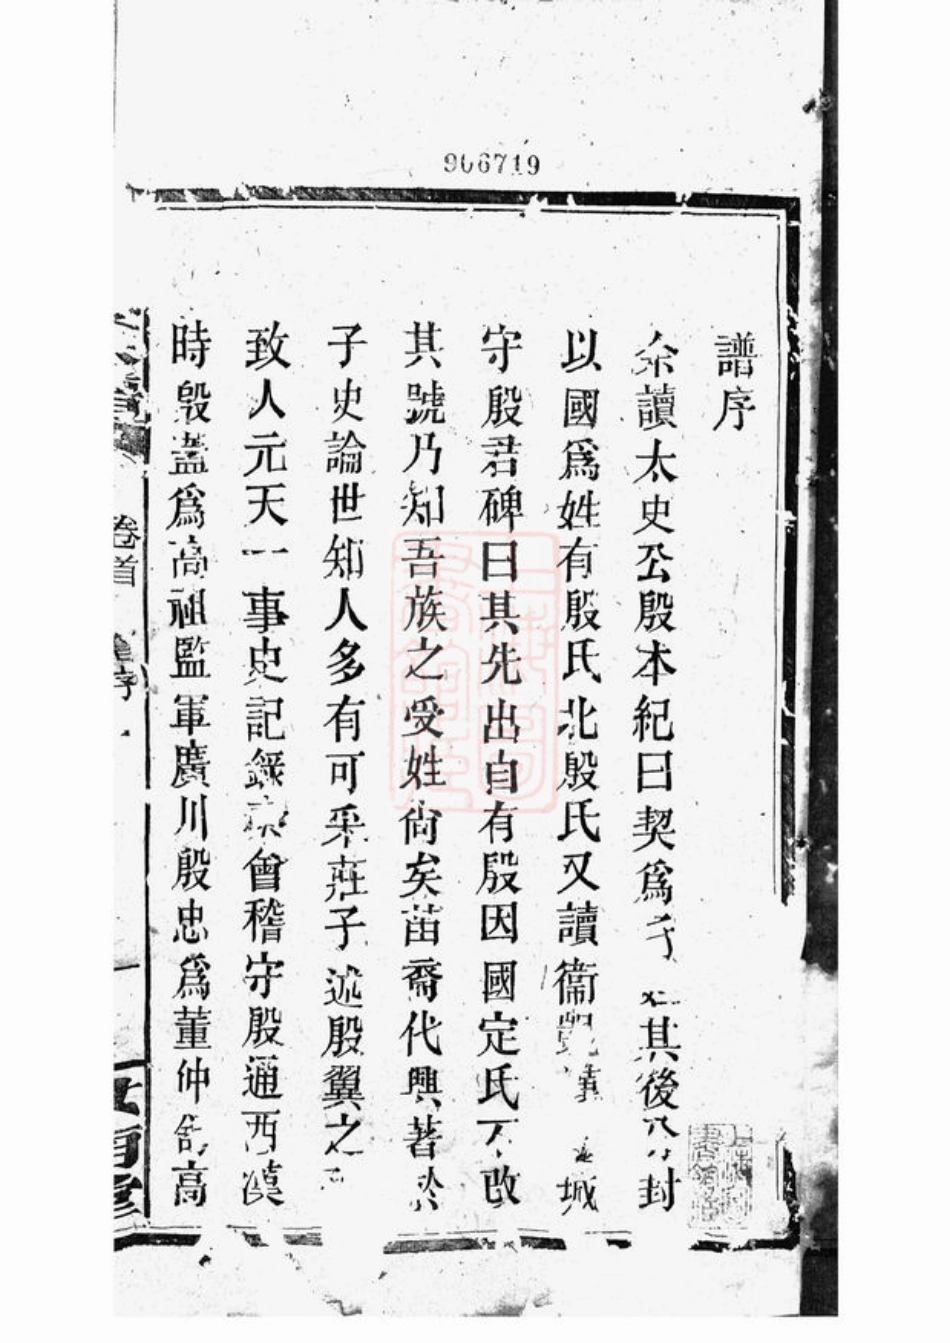 906719
譜序
余讀太史公殷本紀曰契爲子姓其後分封
以國爲姓有殷氏北殷氏又讀衞凱漢城
守殷君碑曰其先出自有殷因國定氏不改
其號乃知吾族之受姓尚矣苗裔代興著於
子史論世知人多有可采莊子述殷翼之
致人元天一事史記錄會稽守殷通西漢
時殷蓋爲高祖監軍廣川殷忠爲董仲舒高
卷首
序